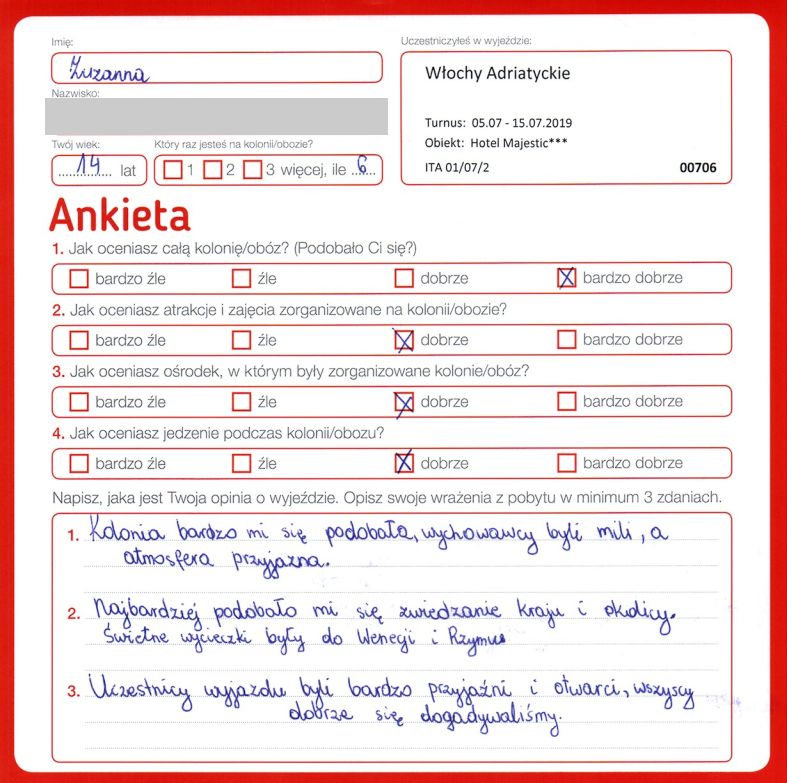 Imię:
Uczestniczyłeś w wyjeździe:
Zuzanna
Włochy Adriatyckie
Nazwisko:
Turnus: 05.07 - 15.07.2019
Obiekt: Hotel Majestic***
ITA 01/07/2 00706
Twój wiek:
Który raz jesteś na kolonii/obozie?
14 lat
1 2 3 więcej, ile 6
Ankieta
1. Jak oceniasz całą kolonię/obóz? (Podobało Ci się?)
bardzo źle źle dobrze X bardzo dobrze
2. Jak oceniasz atrakcje i zajęcia zorganizowane na kolonii/obozie?
bardzo źle źle X dobrze bardzo dobrze
3. Jak oceniasz ośrodek, w którym były zorganizowane kolonie/obóz?
bardzo źle źle X dobrze bardzo dobrze
4. Jak oceniasz jedzenie podczas kolonii/obozu?
bardzo źle źle X dobrze bardzo dobrze
Napisz, jaka jest Twoja opinia o wyjeździe. Opisz swoje wrażenia z pobytu w minimum 3 zdaniach.
1. Kolonia bardzo mi się podobała, wychowawcy byli mili, a
atmosfera przyjazna.
2. Najbardziej podobało mi się zwiedzanie kraju i okolicy.
Świetne wycieczki były do Wenecji i Rzymu
3. Uczestnicy wyjazdu byli bardzo przyjaźni i otwarci, wszyscy
dobrze się dogadywaliśmy.